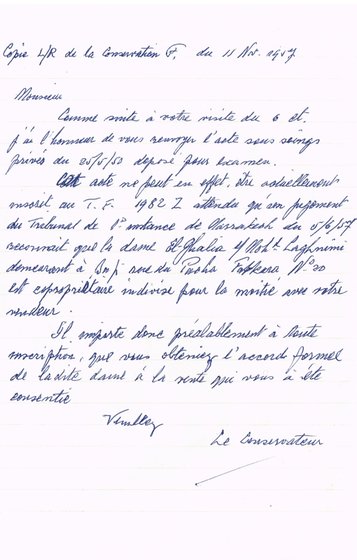 Copie L/R de la Conservation F. du 11 Nov. 1957
Monsieur
Comme suite à votre visite du 6 ct.
j'ai l'honneur de vous renvoyer l'acte sous seings
privés du 20/5/50 déposé pour examen.
Cet acte ne peut en effet, être actuellement
inscrit au T. F. 1982 Z attendu qu'un jugement
du Tribunal de 1° instance de Marrakech du 5/6/57
reconnait que la dame El Ghalia
demeurant à rue du Pacha N° 20
est copropriétaire indivise pour la moitié avec votre
vendeur.
Il importe donc préalablement à toute
inscription, que vous obteniez l'accord formel
de ladite dame à la vente qui vous à été
consentie
Veuillez
Le Conservateur